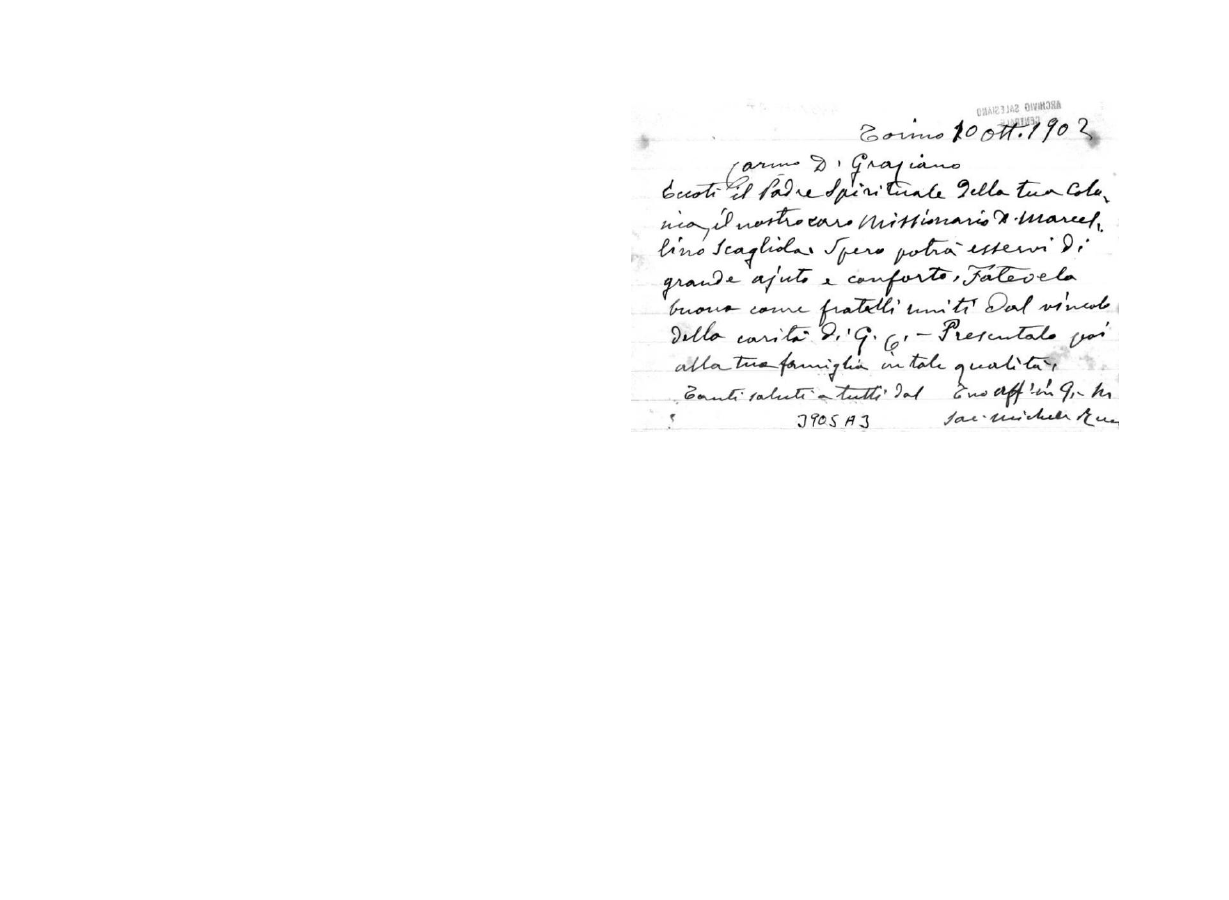 ARCHIVIO SALESIANO
CENTRALE
Torino 10 ott. 1902
Carmo D. Graziano
Eccoti il Padre Spirituale della tua Colo-
nia, il nostro caro Missionario D. Marcel-
lino Scagliola. Spero potrà esservi di
grande ajuto e conforto. Fatevela
buona come fratelli uniti dal vincolo
della carità di G. C. – Presentalo poi
alla tua famiglia in tale qualità.
Tanti saluti a tutti dal Tuo aff in G. M
Sac. Michele Rua
3905 A3